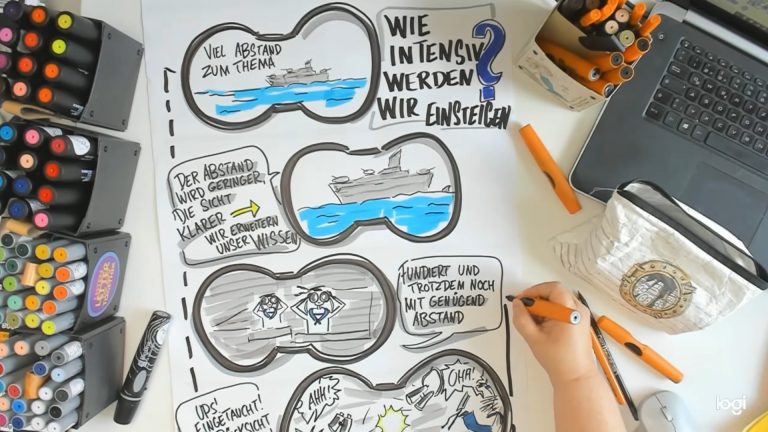 VIEL ABSTAND
ZUM THEMA
WIE
INTENSIV
WERDEN
WIR EINSTEIGEN
?
DER ABSTAND
WIRD GERINGER,
DIE SICHT
KLARER
WIR ERWEITERN
UNSER WISSEN
FUNDIERT UND
TROTZDEM NOCH
MIT GENÜGEND
ABSTAND
UPS!
EINGETAUCHT!
AHH!
OHA!
logi